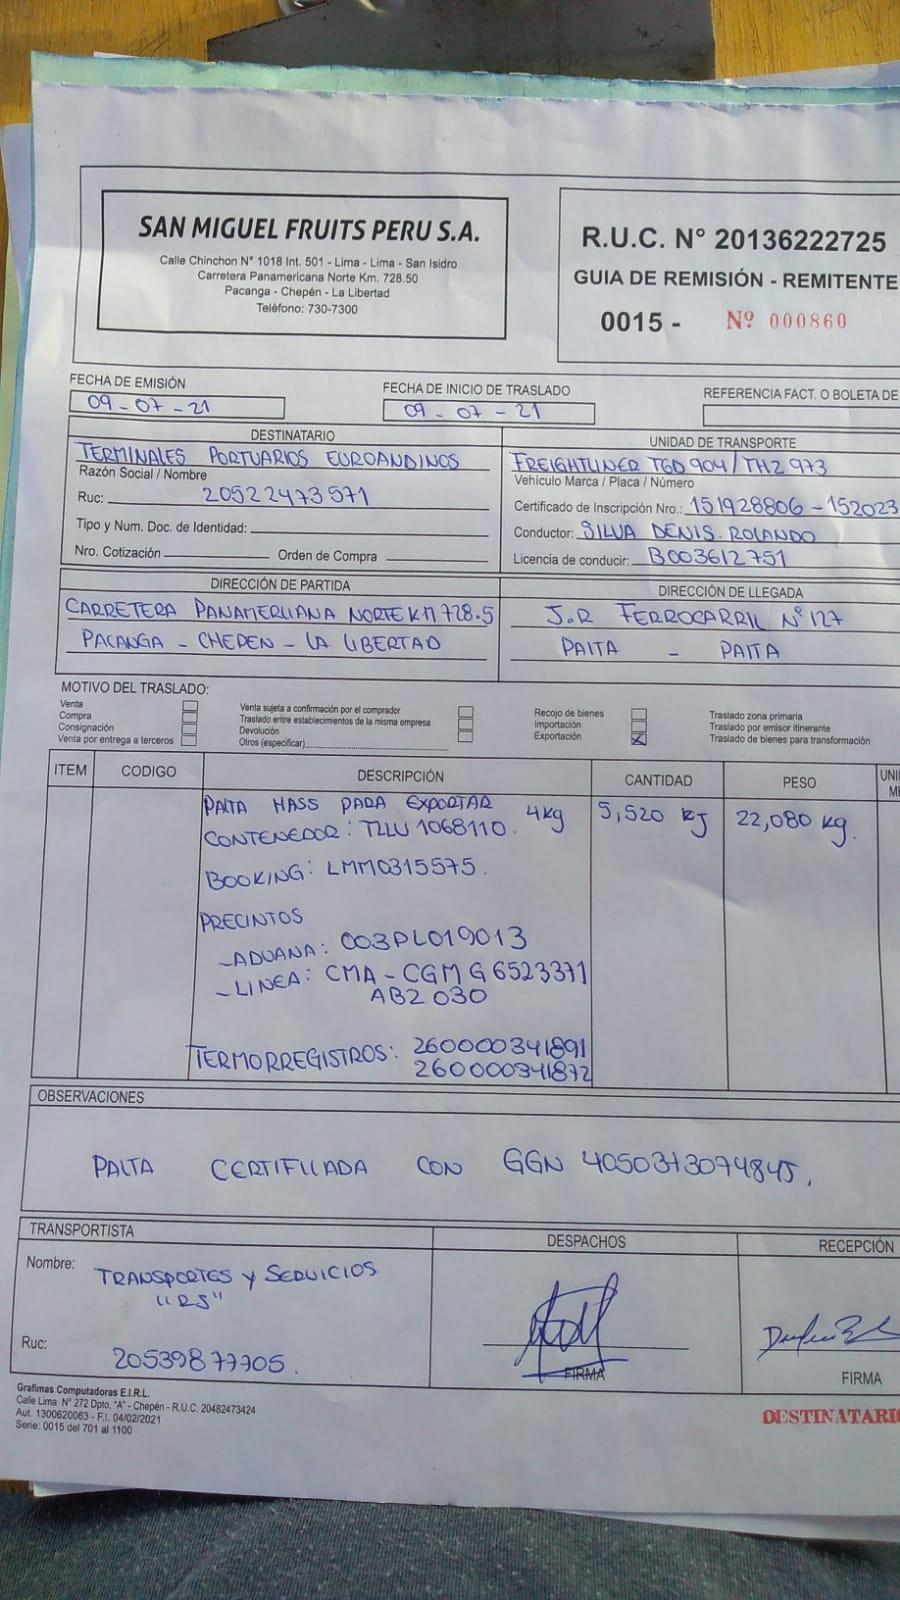 SAN MIGUEL FRUITS PERU S.A.
Calle Chinchon N° 1018 Int. 501 - Lima - Lima - San Isidro
Carretera Panamericana Norte Km. 728.50
Pacanga - Chepén - La Libertad
Teléfono: 730-7300
R.U.C. N° 20136222725
GUIA DE REMISIÓN - REMITENTE
0015 - Nº 000860
FECHA DE EMISIÓN
09-07-21
FECHA DE INICIO DE TRASLADO
09-07-21
REFERENCIA FACT. O BOLETA DE
DESTINATARIO
TERMINALES PORTUARIOS EUROANDINOS
Razón Social / Nombre
Ruc: 20522473571
Tipo y Num. Doc. de Identidad:
Nro. Cotización Orden de Compra
UNIDAD DE TRANSPORTE
FREIGHTLINER TGD 904/TH2 973
Vehículo Marca / Placa / Número
Certificado de Inscripción Nro.: 151928806 - 152023
Conductor: SILVA DENIS. ROLANDO
Licencia de conducir: B003612751
DIRECCIÓN DE PARTIDA
CARRETERA PANAMERIIANA NORTE KM 728.5
PACANGA - CHEPEN - LA LIBERTAD
DIRECCIÓN DE LLEGADA
J.R FERROCARRIL Nº 127
PAITA - PAITA
MOTIVO DEL TRASLADO:
Venta
Compra
Consignación
Venta por entrega a terceros
Venta sujeta a confirmación por el comprador
Traslado entre establecimientos de la misma empresa
Devolución
Otros (especificar)
Recojo de bienes
Importación
Exportación X
Traslado zona primaria
Traslado por emisor itinerante
Traslado de bienes para transformación
ITEM CODIGO DESCRIPCIÓN CANTIDAD PESO UNI
ME
PALTA HASS PARA EXPORTAR 4kg 5,520 kj 22,080 kg.
CONTENEDOR: TLLU 1068110.
BOOKING: LMM0315575.
PRECINTOS
-ADUANA: 003PL019013
-LINEA: CMA - CGM G6523371
AB2 030
TERMORREGISTROS: 260000341891
260000341872
OBSERVACIONES
PALTA CERTIFICADA CON GGN 4050373074845.
TRANSPORTISTA
Nombre: TRANSPORTES y SERVICIOS
"RS"
Ruc: 20539877705.
DESPACHOS
FIRMA
RECEPCIÓN
FIRMA
Grafimas Computadoras E.I.R.L.
Calle Lima N° 272 Dpto. "A" - Chepén - R.U.C. 20482473424
Aut. 1300620063 - F.I. 04/02/2021
Serie: 0015 del 701 al 1100
DESTINATARIO